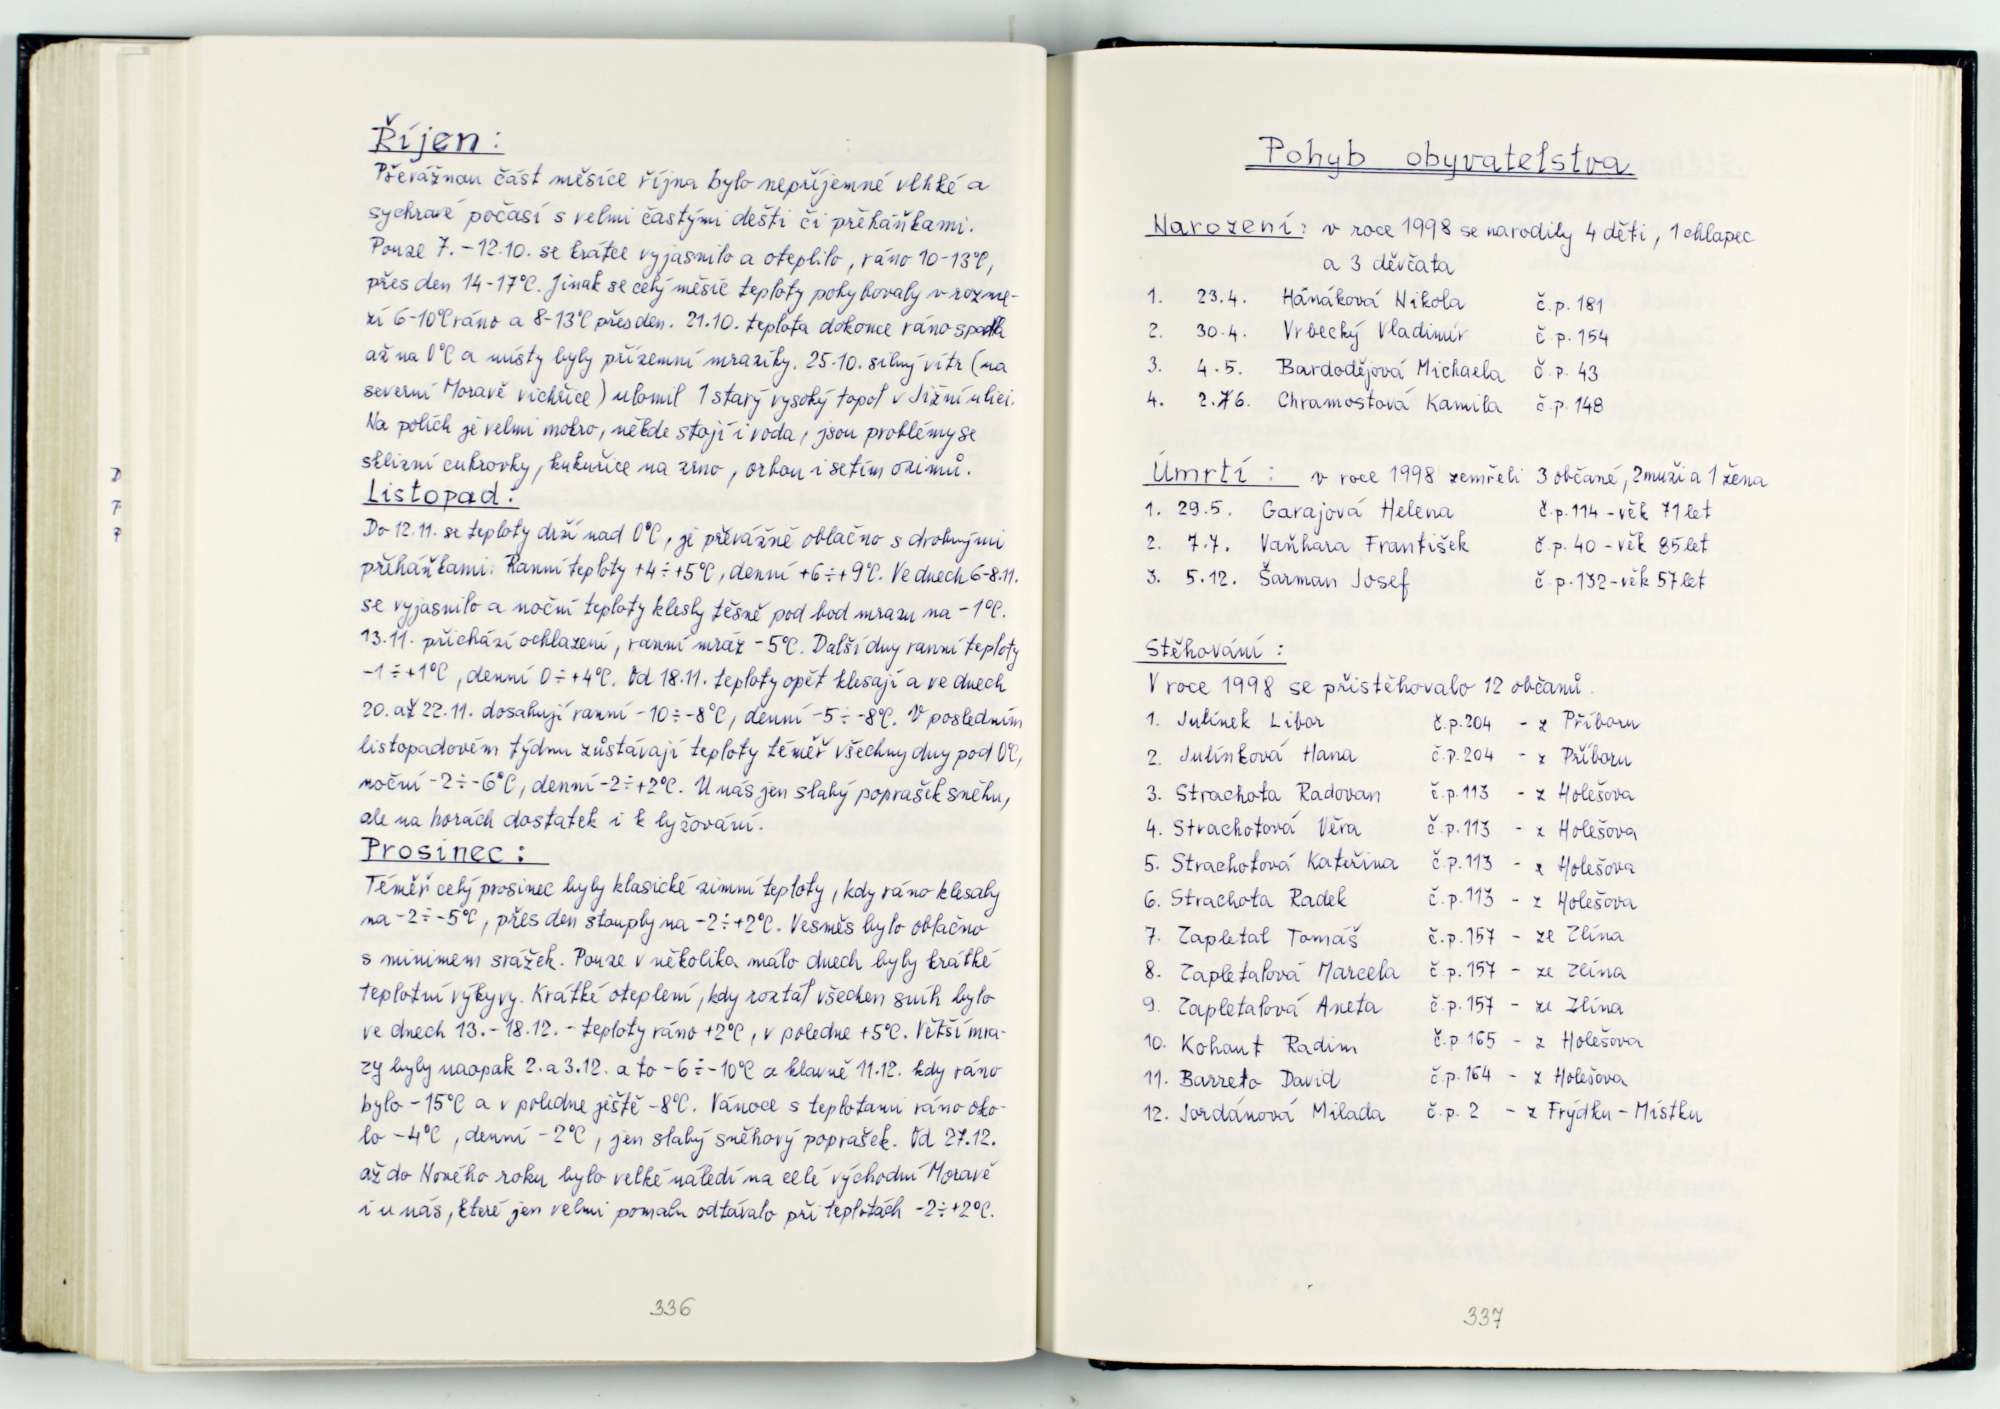 Říjen:
Převážnou část měsíce října bylo nepříjemné vlhké a
sychravé počasí s velmi častými dešti či přeháňkami.
Pouze 7. - 12.10. se krátce vyjasnilo a oteplilo, ráno 10-13°C,
přes den 14-17°C. Jinak se celý měsíc teploty pohybovaly v rozme-
zí 6-10°C ráno a 8-13°C přes den. 21.10. teplota dokonce ráno spadla
až na 0°C a místy byly přízemní mrazíky. 25.10. silný vítr (na
severní Moravě vichřice) ulomil 1 starý vysoký topol v Jižní ulici.
Na polích je velmi mokro, někde stojí i voda, jsou problémy se
sklizní cukrovky, kukuřice na zrno, orbou i setím ozimů.
Listopad:
Do 12.11. se teploty drží nad 0°C, je převážně oblačno s drobnými
přeháňkami. Ranní teploty +4÷+5°C, denní +6÷+9°C. Ve dnech 6-8.11.
se vyjasnilo a noční teploty klesly těsně pod bod mrazu na -1°C.
13.11. přichází ochlazení, ranní mráz -5°C. Další dny ranní teploty
-1÷+1°C, denní 0÷+4°C. Od 18.11. teploty opět klesají a ve dnech
20. až 22.11. dosahují ranní -10÷-8°C, denní -5÷-8°C. V posledním
listopadovém týdnu zůstávají teploty téměř všechny dny pod 0°C,
noční -2÷-6°C, denní -2÷+2°C. U nás jen slabý poprašek sněhu,
ale na horách dostatek i k lyžování.
Prosinec:
Téměř celý prosinec byly klasické zimní teploty, kdy ráno klesaly
na -2÷-5°C, přes den stouply na -2÷+2°C. Vesměs bylo oblačno
s minimem srážek. Pouze v několika málo dnech byly krátké
teplotní výkyvy. Krátké oteplení, kdy roztál všechen sníh bylo
ve dnech 13.-18.12. - teploty ráno +2°C, v poledne +5°C. Větší mra-
zy byly naopak 2. a 3.12. a to -6÷-10°C a hlavně 11.12. kdy ráno
bylo -15°C a v poledne ještě -8°C. Vánoce s teplotami ráno oko-
lo -4°C, denní -2°C, jen slabý sněhový poprašek. Od 27.12.
až do Nového roku bylo velké náledí na celé východní Moravě
i u nás, které jen velmi pomalu odtávalo při teplotách -2÷+2°C.
336
Pohyb obyvatelstva
Narození: v roce 1998 se narodily 4 děti, 1 chlapec
a 3 děvčata
1. 23.4. Hánáková Nikola č.p. 181
2. 30.4. Vrbecký Vladimír č.p. 154
3. 4.5. Bardodějová Michaela č.p. 43
4. 2.6. Chramostová Kamila č.p. 148
Úmrtí: v roce 1998 zemřeli 3 občané, 2 muži a 1 žena
1. 29.5. Garajová Helena č.p. 114 - věk 71 let
2. 7.7. Vaňhara František č.p. 40 - věk 85 let
3. 5.12. Šarman Josef č.p. 132 - věk 57 let
Stěhování:
V roce 1998 se přistěhovalo 12 občanů.
1. Julínek Libor č.p. 204 - z Příboru
2. Julínková Hana č.p. 204 - z Příboru
3. Strachota Radovan č.p. 113 - z Holešova
4. Strachotová Věra č.p. 113 - z Holešova
5. Strachotová Kateřina č.p. 113 - z Holešova
6. Strachota Radek č.p. 113 - z Holešova
7. Zapletal Tomáš č.p. 157 - ze Zlína
8. Zapletalová Marcela č.p. 157 - ze Zlína
9. Zapletalová Aneta č.p. 157 - ze Zlína
10. Kohaut Radim č.p. 165 - z Holešova
11. Barreto David č.p. 164 - z Holešova
12. Jordánová Milada č.p. 2 - z Frýdku-Místku
337